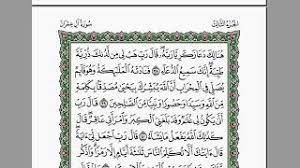 سورة آل عمران الجزء الثالث
هنالك دعا زكريا ربه قال رب هب لي من لدنك ذرية
طيبة إنك سميع الدعاء فنادته الملائكة وهو قائم
يصلي في المحراب أن الله يبشرك بيحيى مصدقا بكلمة
من الله وسيدا وحصورا ونبيا من الصالحين قال رب
أنى يكون لي غلام وقد بلغني الكبر وامرأتي عاقر قال
كذلك الله يفعل ما يشاء قال رب اجعل لي آية